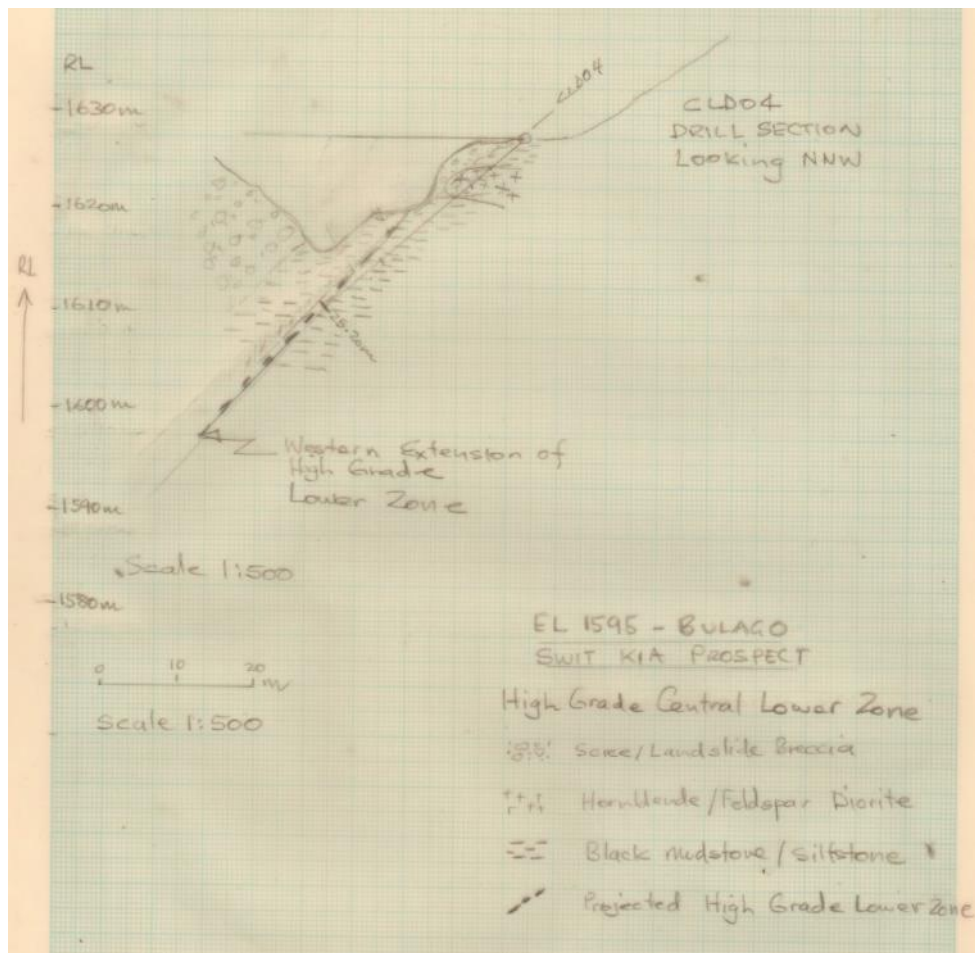 RL
1630m
1620m
1610m
1600m
1590m
1580m
RL
CLD04
CLD04
DRILL SECTION
Looking NNW
Western Extension of
High Grade
Lower Zone
Scale 1:500
0 10 20 m
Scale 1:500
EL 1595 - BULAGO
SWIT KIA PROSPECT
High Grade Central Lower Zone
Scree/Landslide Breccia
Hornblende/Feldspar Diorite
Black mudstone/siltstone
Projected High Grade Lower Zone